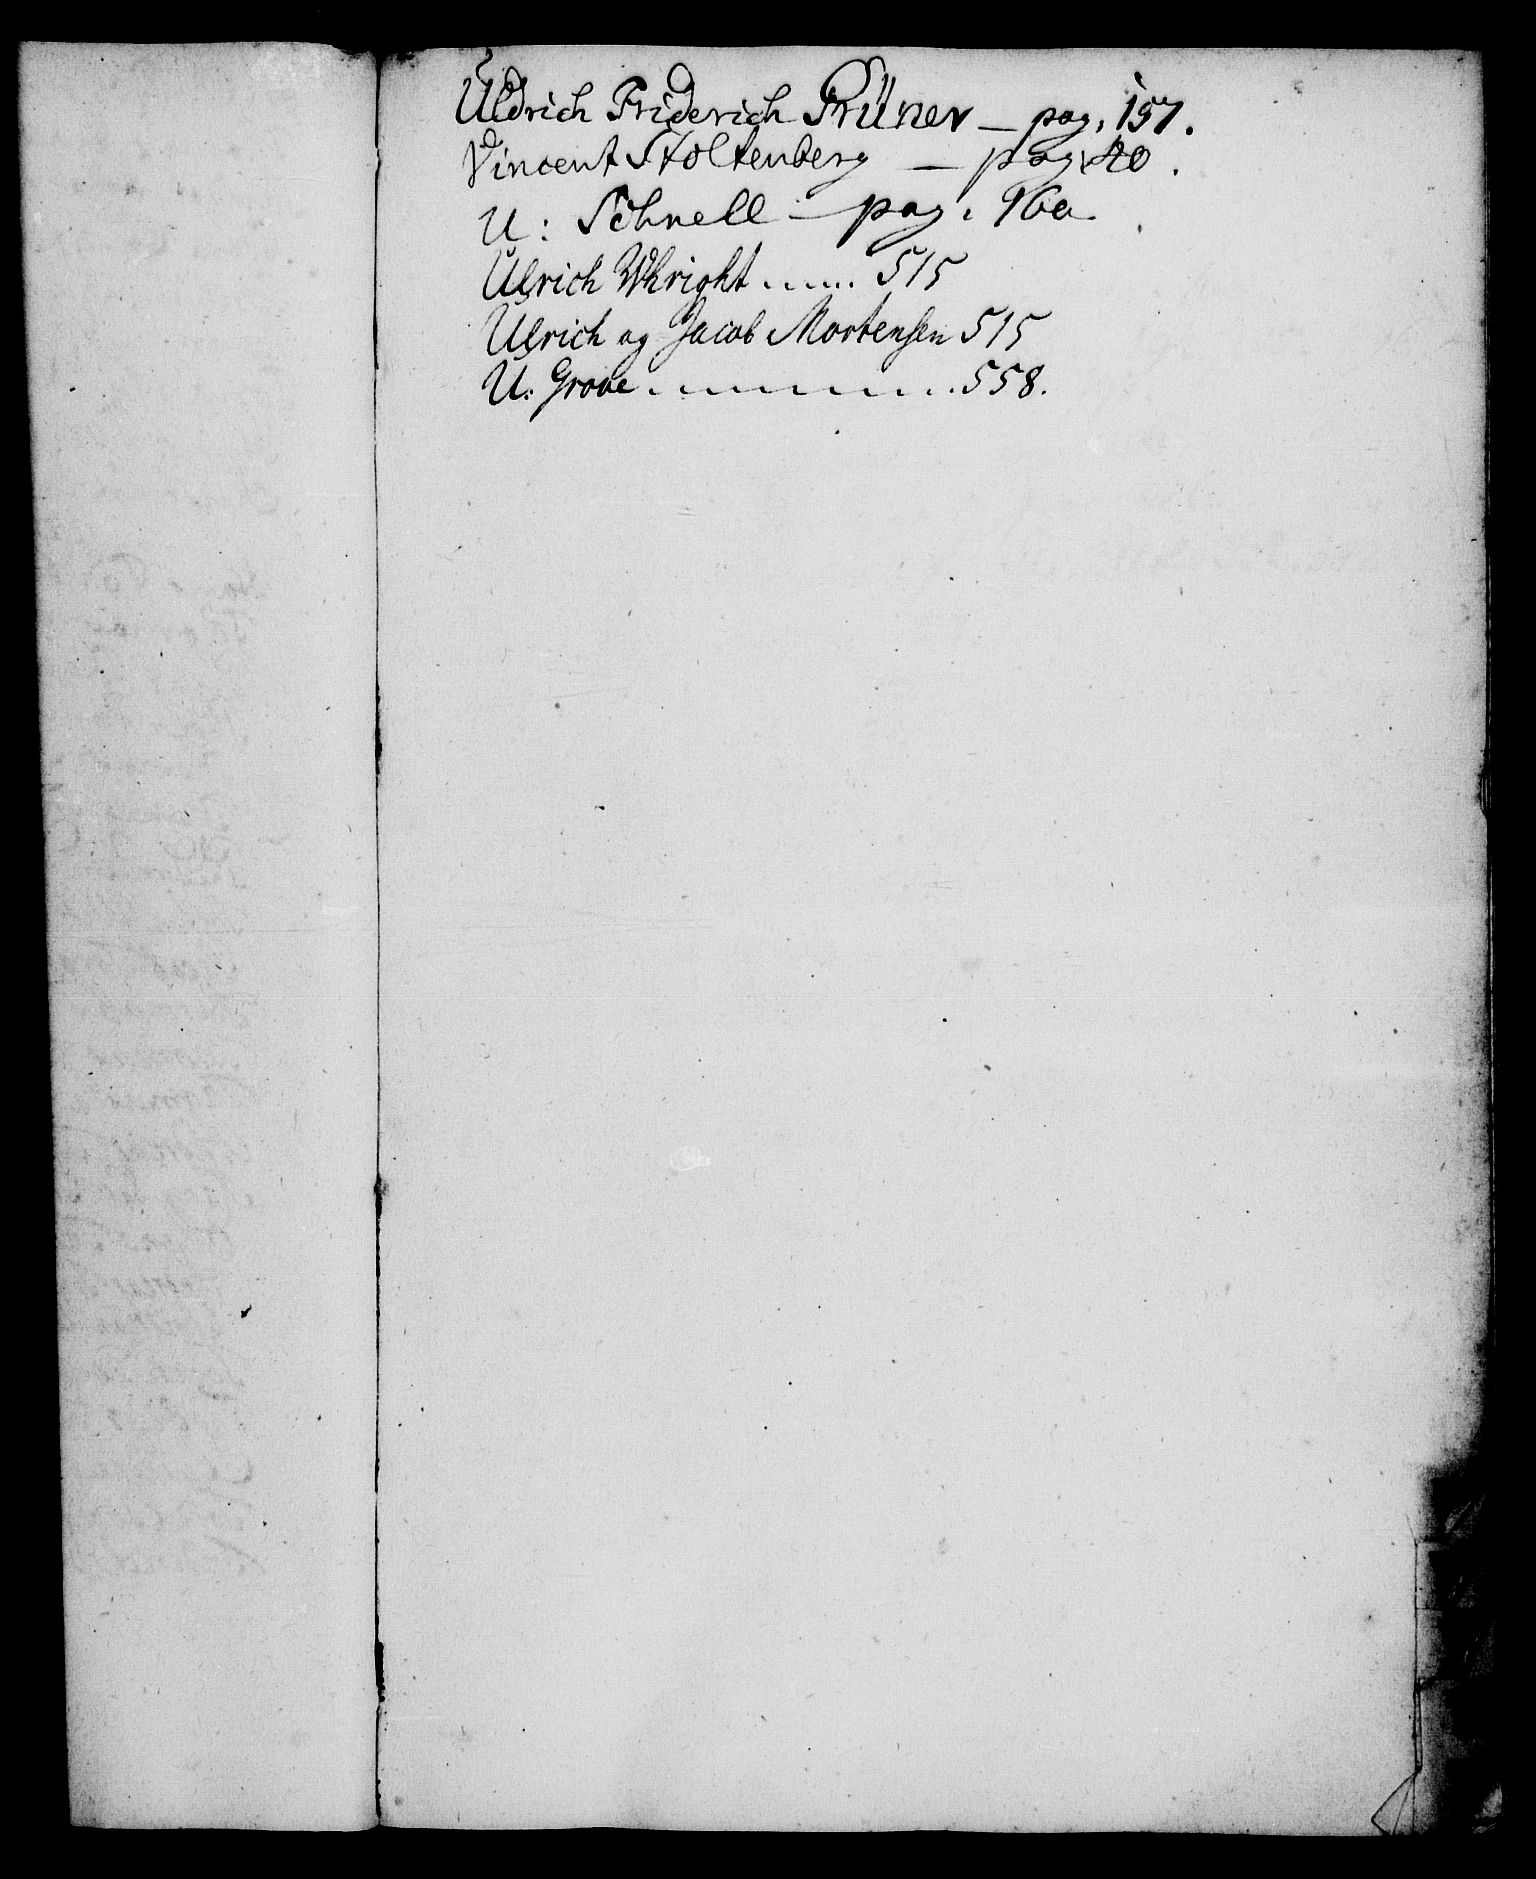 Uldrich Friderich Prüner – pag. 157.
Vincent Stoltenberg – pag. 40.
U: Schnell – pag. 160.
Ulrich Whright ...... 515
Ulrich og Jacob Mortensen 515
U. Grove . . . . . . . . . . 558.